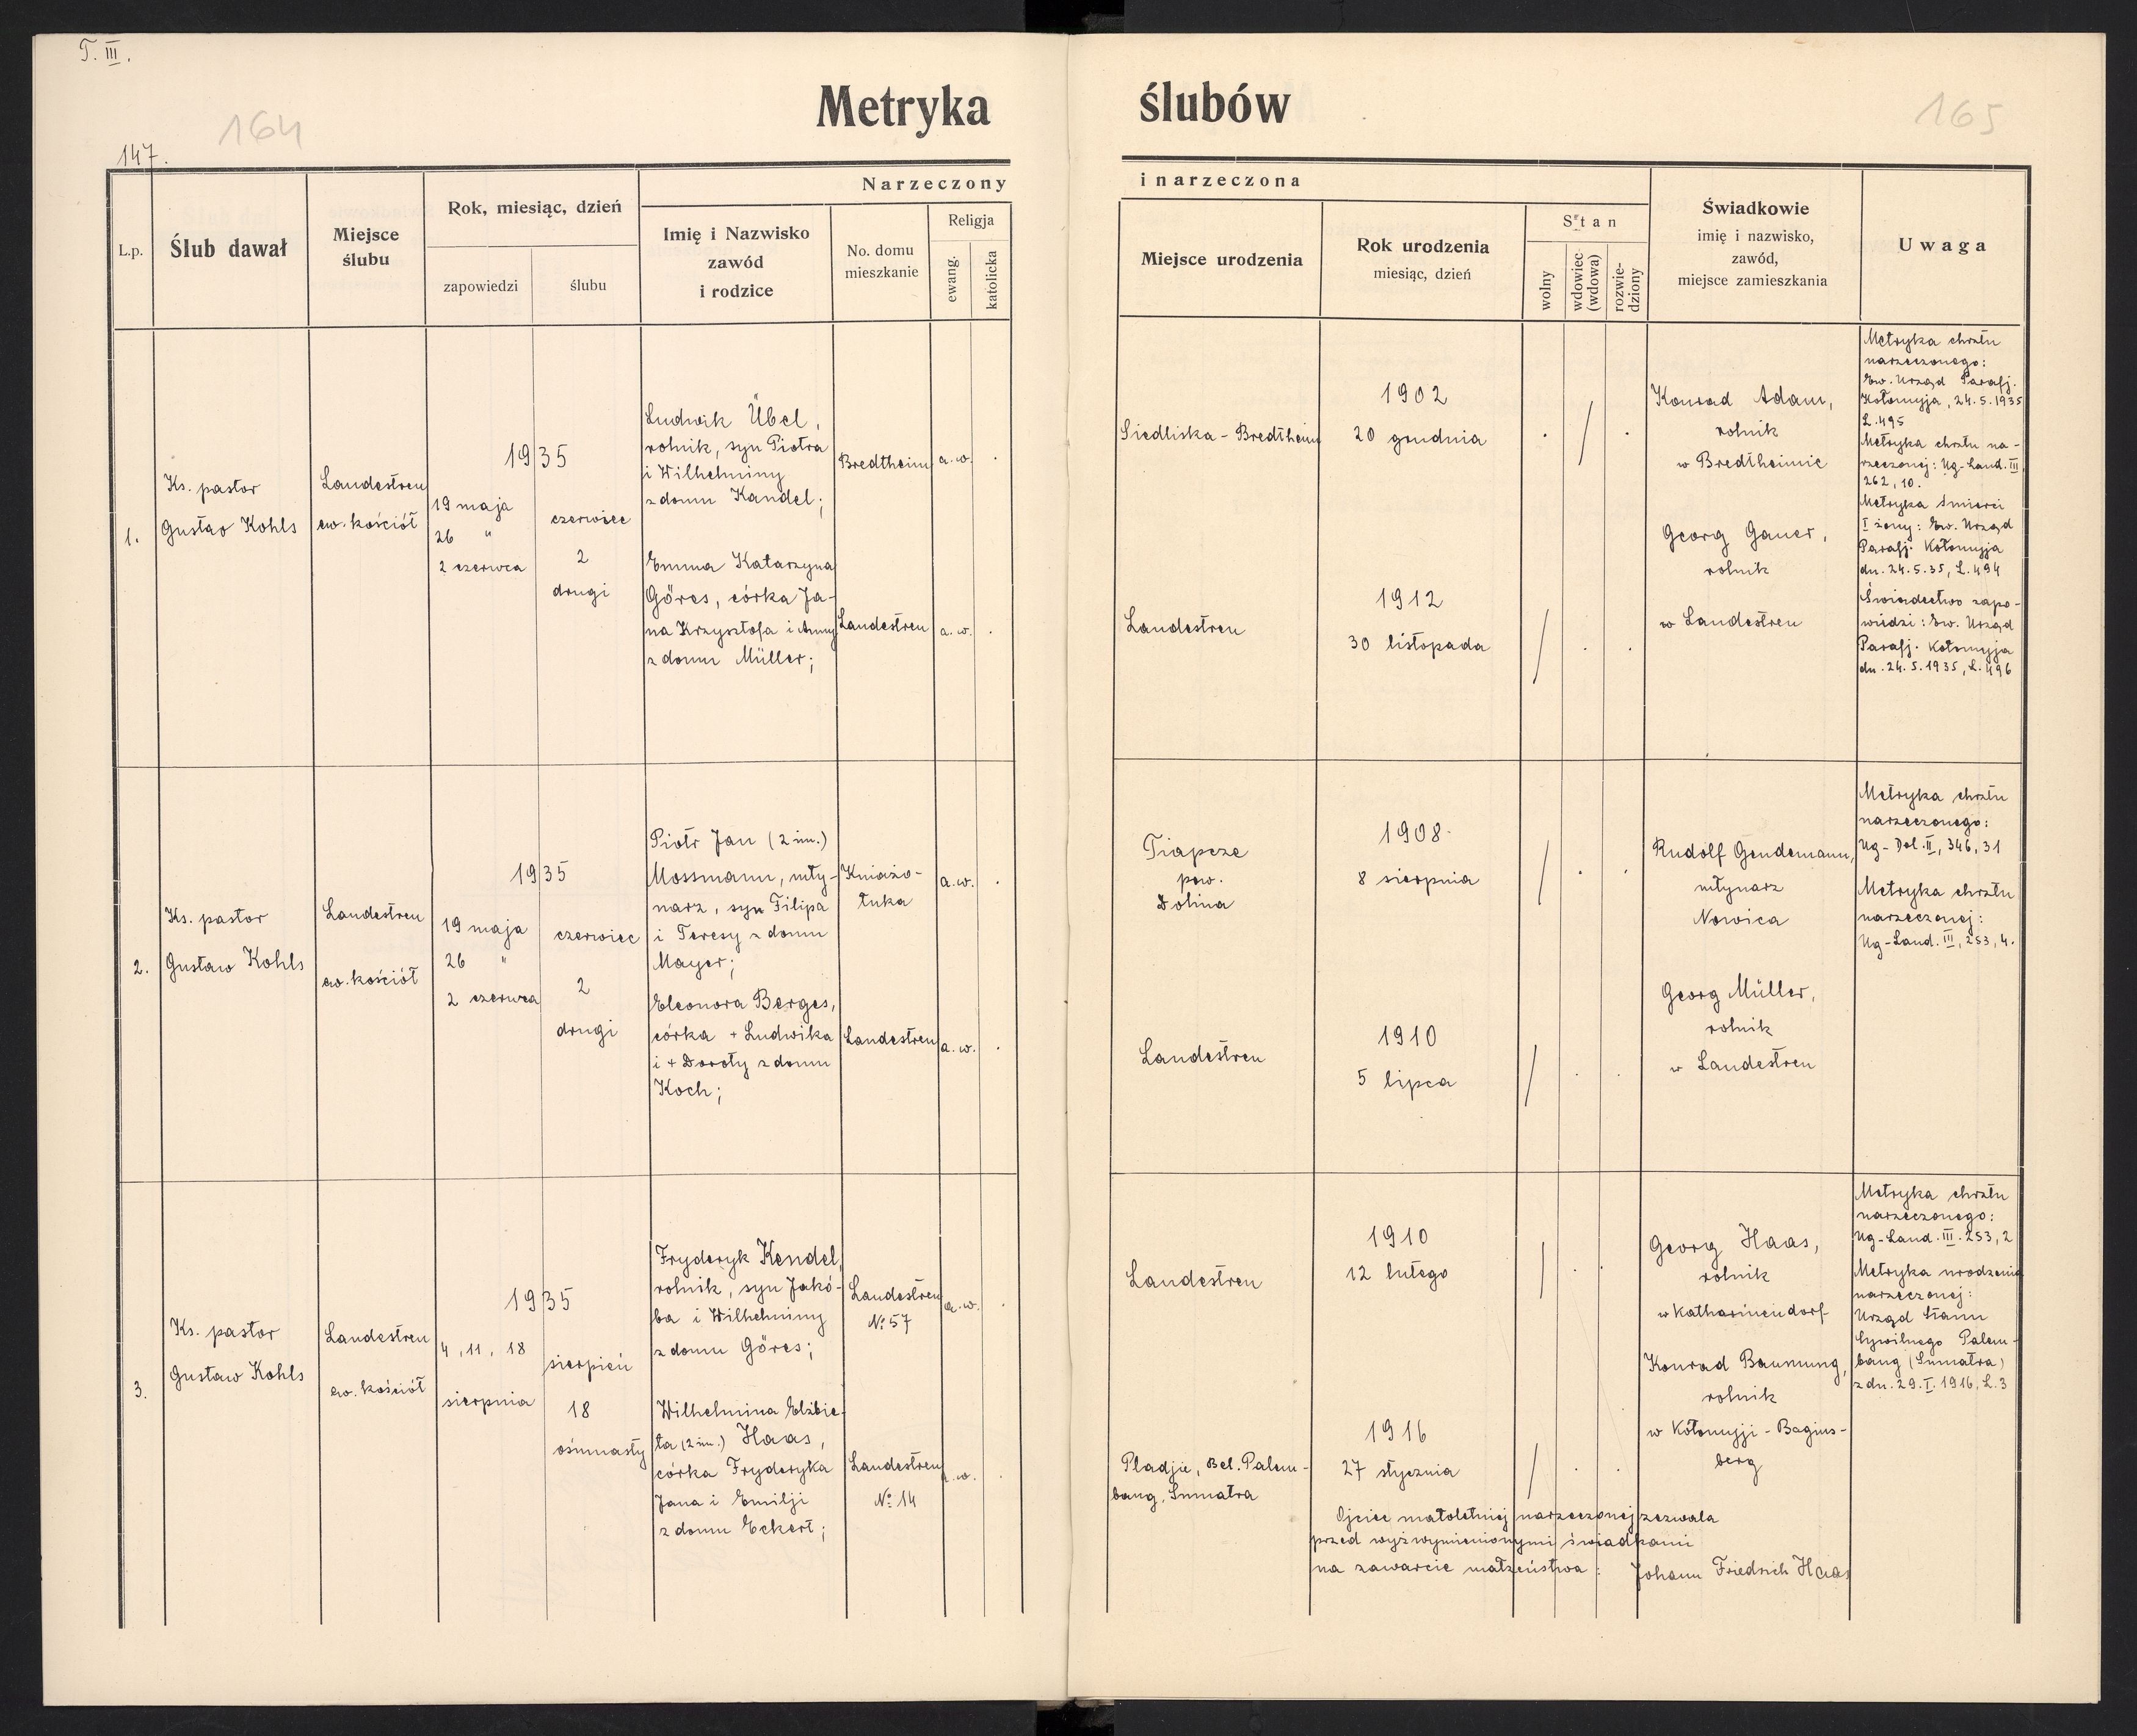 T. III.
Metryka ślubów
164
165
147.
Narzeczony
i narzeczona
L.p.
Ślub dawał
Miejsce
ślubu
Rok, miesiąc, dzień
zapowiedzi
ślubu
Imię i Nazwisko
zawód
i rodzice
No. domu
mieszkanie
Religja
ewang.
katolicka
Miejsce urodzenia
Rok urodzenia
miesiąc, dzień
Stan
wolny
wdowiec
(wdowa)
rozwie-
dziony
Świadkowie
imię i nazwisko,
zawód,
miejsce zamieszkania
Uwaga
1.
Ks. pastor
Gustav Kohls
Landestreu
ew. kościół
1935
19 maja
26 "
2 czerwca
czerwiec
2
drugi
Ludwik Übel,
rolnik, syn Piotra
i Wilhelminy
z domu Kandel;
Bredtheim
a.w. .
Emma Katarzyna
Göres, córka Ja-
na Krzysztofa i Anny
z domu Müller;
Landestreu
a.w. .
Siedliska - Bredtheim
1902
20 grudnia
. / .
Landestreu
1912
30 listopada
/ . .
Konrad Adam,
rolnik
w Bredtheimie
Georg Gauer,
rolnik
w Landestreu
Metryka chrztu
narzeczonego:
Ew. Urząd Parafj.
Kołomyja, 24.5.1935
L.495
Metryka chrztu na-
rzeczonej: Ug-Land. III
262, 10.
Metryka śmierci
I żony: Ew. Urząd
Parafj. Kołomyja
dn. 24.5.35, L.494
Świadectwo zapo-
wiedzi: Ew. Urząd
Parafj. Kołomyja
dn. 24.5.1935, L.496
2.
Ks. pastor
Gustaw Kohls
Landestreu
ew. kościół
1935
19 maja
26 "
2 czerwca
czerwiec
2
drugi
Piotr Jan (2 im.)
Mossmann, mły-
narz, syn Filipa
i Teresy z domu
Mayer;
Kniazio-
łuka
a.w. .
Eleonora Berges,
córka + Ludwika
i + Doroty z domu
Koch;
Landestreu
a.w. .
Tiapcze
pow.
Dolina
1908
8 sierpnia
/ . .
Landestreu
1910
5 lipca
/ . .
Rudolf Gendemann,
młynarz
Nowica
Georg Müller,
rolnik
w Landestreu
Metryka chrztu
narzeczonego:
Ug- Dol. II, 346, 31
Metryka chrztu
narzeczonej:
Ug-Land. III, 253, 4.
3.
Ks. pastor
Gustaw Kohls
Landestreu
ew. kościół
1935
4, 11, 18
sierpnia
sierpień
18
ośmnasty
Fryderyk Kendel,
rolnik, syn Jakó-
ba i Wilhelminy
z domu Göres;
Landestreu
№ 57
a.w. .
Wilhelmina Elżbie-
ta (2 im.) Haas,
córka Fryderyka
Jana i Emilji
z domu Eckert;
Landestreu
№ 14
a.w. .
Landestreu
1910
12 lutego
/ . .
Pladjie, Bel. Palem-
bang, Sumatra
1916
27 stycznia
/ . .
Georg Haas,
rolnik
w Katharinendorf
Konrad Baumung,
rolnik
w Kołomyji - Bagins-
berg
Metryka chrztu
narzeczonego:
Ug-Land. III. 253, 2
Metryka urodzenia
narzeczonej:
Urząd Stanu
Cywilnego Palem-
bang (Sumatra)
z dn. 29.I.1916, L.3
Ojciec małoletniej narzeczonej zezwala
przed wyżwymienionymi świadkami
na zawarcie małżeństwa: Johann Friedrich Haas